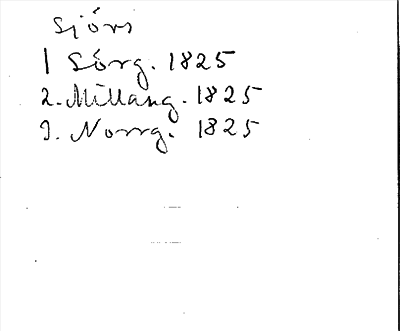 Sjörs
1 Sörg. 1825
2. Millang. 1825
3. Norrg. 1825